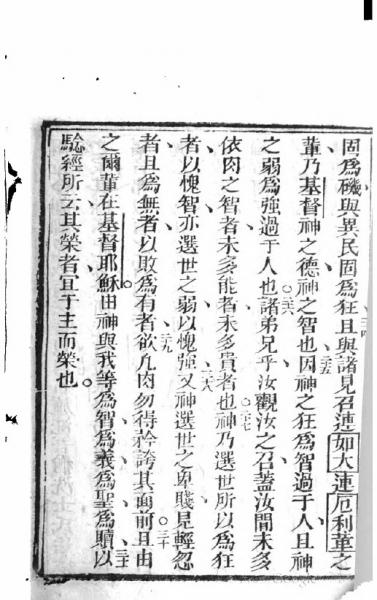 固爲磯與異民固爲狂且與諸見召連如大連厄利輩之
輩乃基督神之德神之智也因神之狂爲智過于人且神
之弱爲強過于人也諸弟兄乎汝觀汝之召蓋汝間未多
依肉之智者未多能者未多貴者也神乃選世所以爲狂
者以愧智亦選世之弱以愧強又神選世之卑賤見輕忽
者且爲無者以敗爲有者欲凡肉勿得矜誇其面前且由
之爾輩在基督耶穌由神與我等爲智爲義爲聖爲贖以
驗經所云其榮者宜于主而榮也